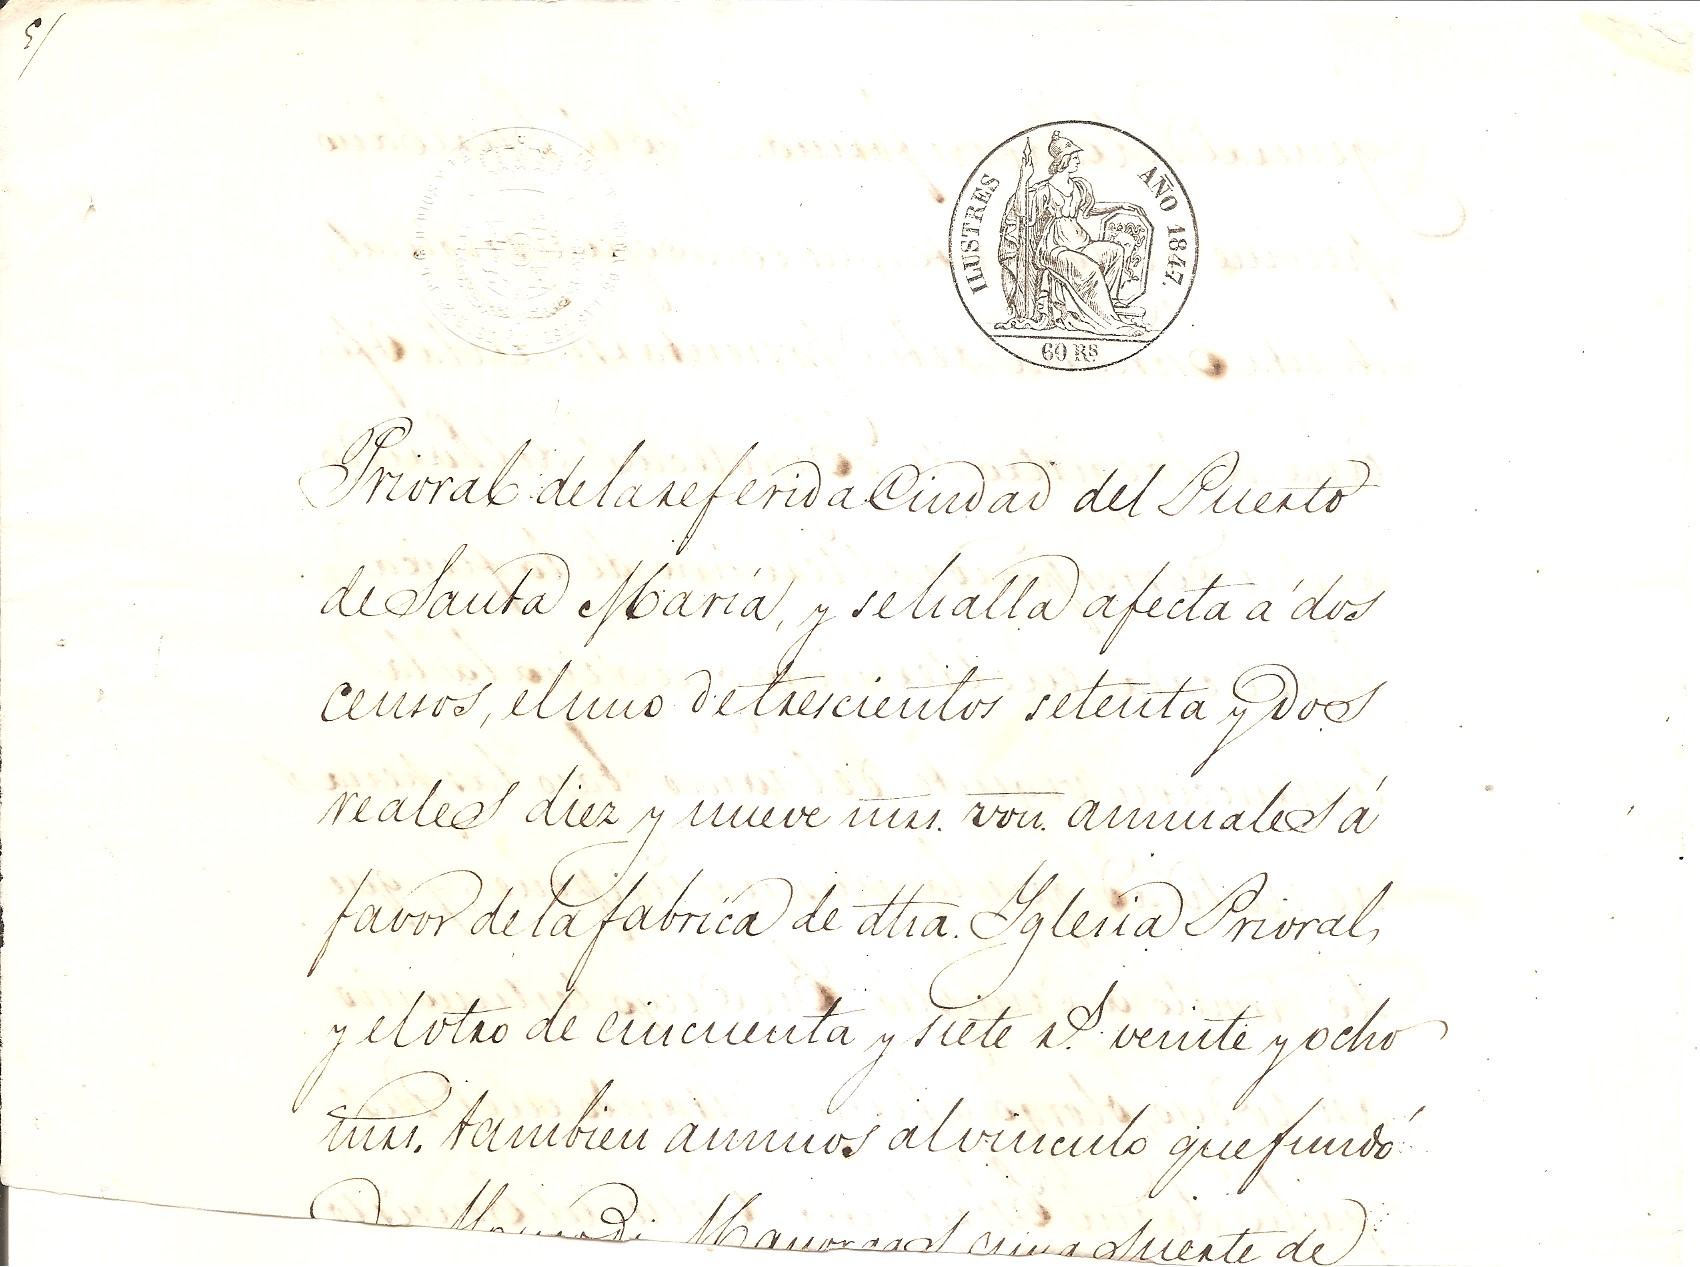 5/
ILUSTRES
AÑO 1847.
60 Rs.
Prioral de la referida Ciudad del Puerto
de Santa María, y se halla afecta á dos
censos, el uno de trescientos setenta y dos
reales diez y nueve mrs. von. annuales á
favor de la fabrica de dha. Yglesia Prioral,
y el otro de cincuenta y siete rs. veinte y ocho
mrs. tambien annuos al vinculo que fundó
suerte de